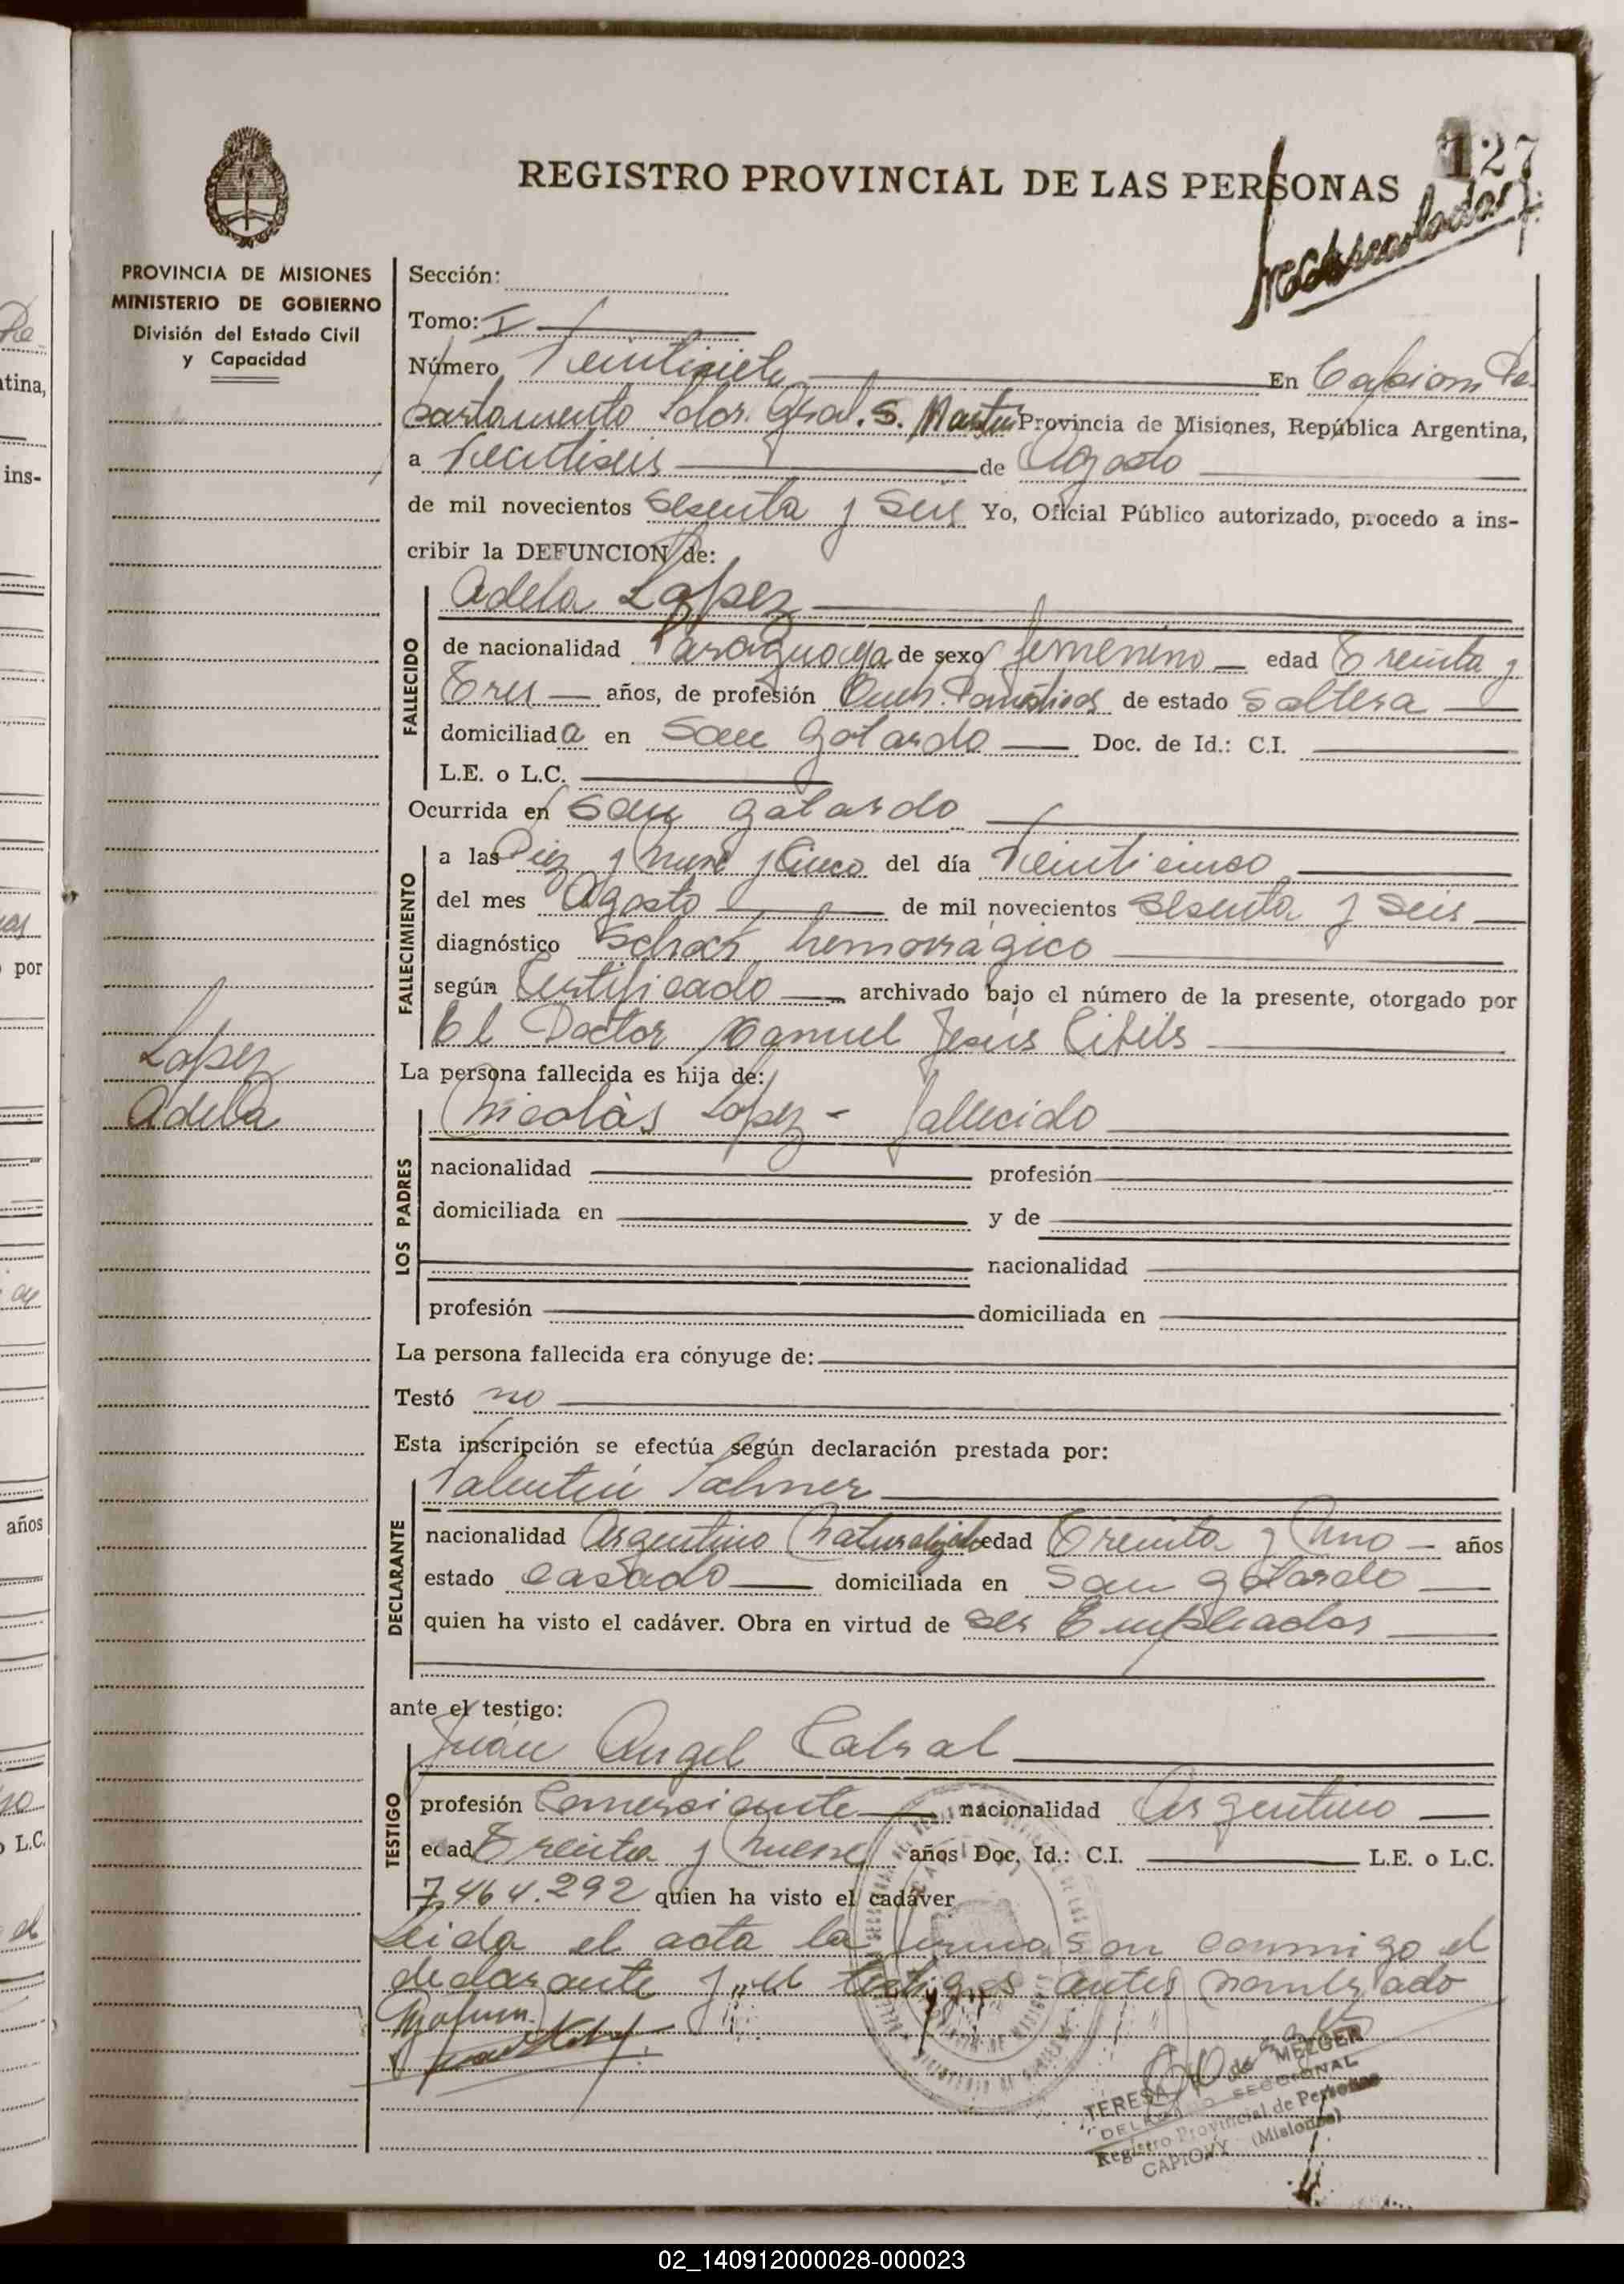 127
REGISTRO PROVINCIAL DE LAS PERSONAS
PROVINCIA DE MISIONES
MINISTERIO DE GOBIERNO
División del Estado Civil
y Capacidad
Sección:
Tomo: I
Número Veintisiete En Capiovi De
partamento Ldor. Gral. S. Martin Provincia de Misiones, República Argentina,
a Veintiseis de Agosto
de mil novecientos sesenta y seis Yo, Oficial Público autorizado, procedo a ins-
cribir la DEFUNCION de:
FALLECIDO
Adela Lopez
de nacionalidad Paraguaya de sexo femenino edad Treinta y
Tres años, de profesión Queh. Domésticos de estado soltera
domiciliada en San Gotardo Doc. de Id.: C.I.
L.E. o L.C.
Ocurrida en San Gotardo
FALLECIMIENTO
a las Diez y nueve y Cinco del día Veinticinco
del mes Agosto de mil novecientos sesenta y seis
diagnóstico Schock hemorrágico
según Certificado archivado bajo el número de la presente, otorgado por
El Doctor Manuel Jesús Cibils
Lopez
Adela
La persona fallecida es hija de:
LOS PADRES
Nicolás Lopez - fallecido
nacionalidad profesión
domiciliada en y de
nacionalidad
profesión domiciliada en
La persona fallecida era cónyuge de:
Testó no
Esta inscripción se efectúa según declaración prestada por:
DECLARANTE
Valentín
nacionalidad Argentino Naturalizado edad Treinta y Uno años
estado casado domiciliada en San Gotardo
quien ha visto el cadáver. Obra en virtud de ser Empleador
ante el testigo:
TESTIGO
Juán Angel Cabral
profesión Comerciante nacionalidad Argentino
edad Treinta y nueve años Doc. Id.: C.I. L.E. o L.C.
7.464.292 quien ha visto el cadáver
Leida el acta la firmason conmigo el
declarante y el testigos antes nombrado
TERESA de MELGER
DELEGADO SECCIONAL
Registro Provincial de Personas
CAPIOVY (Misiones)
02_140912000028-000023